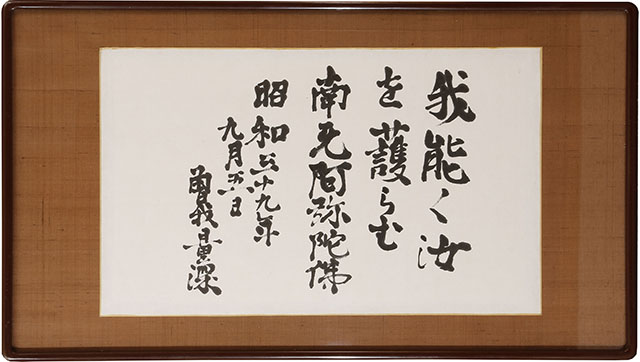 我能く汝
を護らむ
南无阿弥陀佛
昭和三十九年
九月日
曾我量深